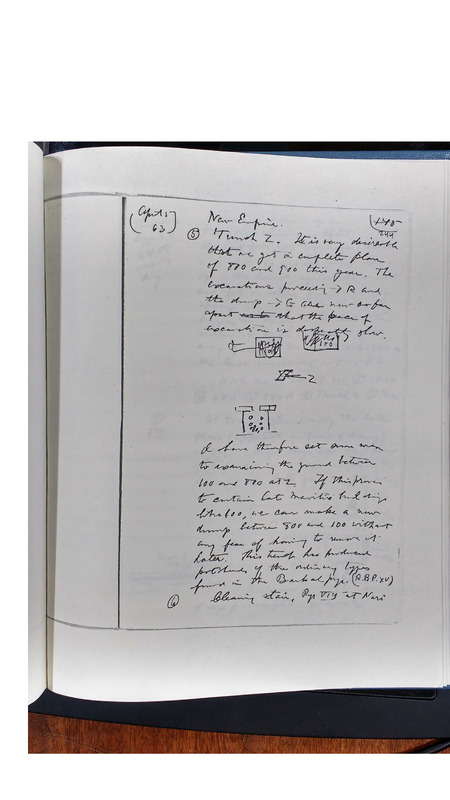 April 5
63
New Empire.
244
5 Trench 2. It is very desirable
that we get a complete plan
of 800 and 900 this year. The
excavations proceeding → R and
the dump → are now so far
apart that the pace of
excavation is slow.
2
I have therefore set some men
to examining the ground between
100 and 800 at 2. If this proves
to contain late Meroitic buildings
like 600, we can make a new
dump between 800 and 100 without
any fear of having to remove it
later. This trench has produced
potsherds of the ordinary types
found in the Barkal pyrs. (R.B.P. XV)
6 Clearing stair, Pyr VIII at Nuri